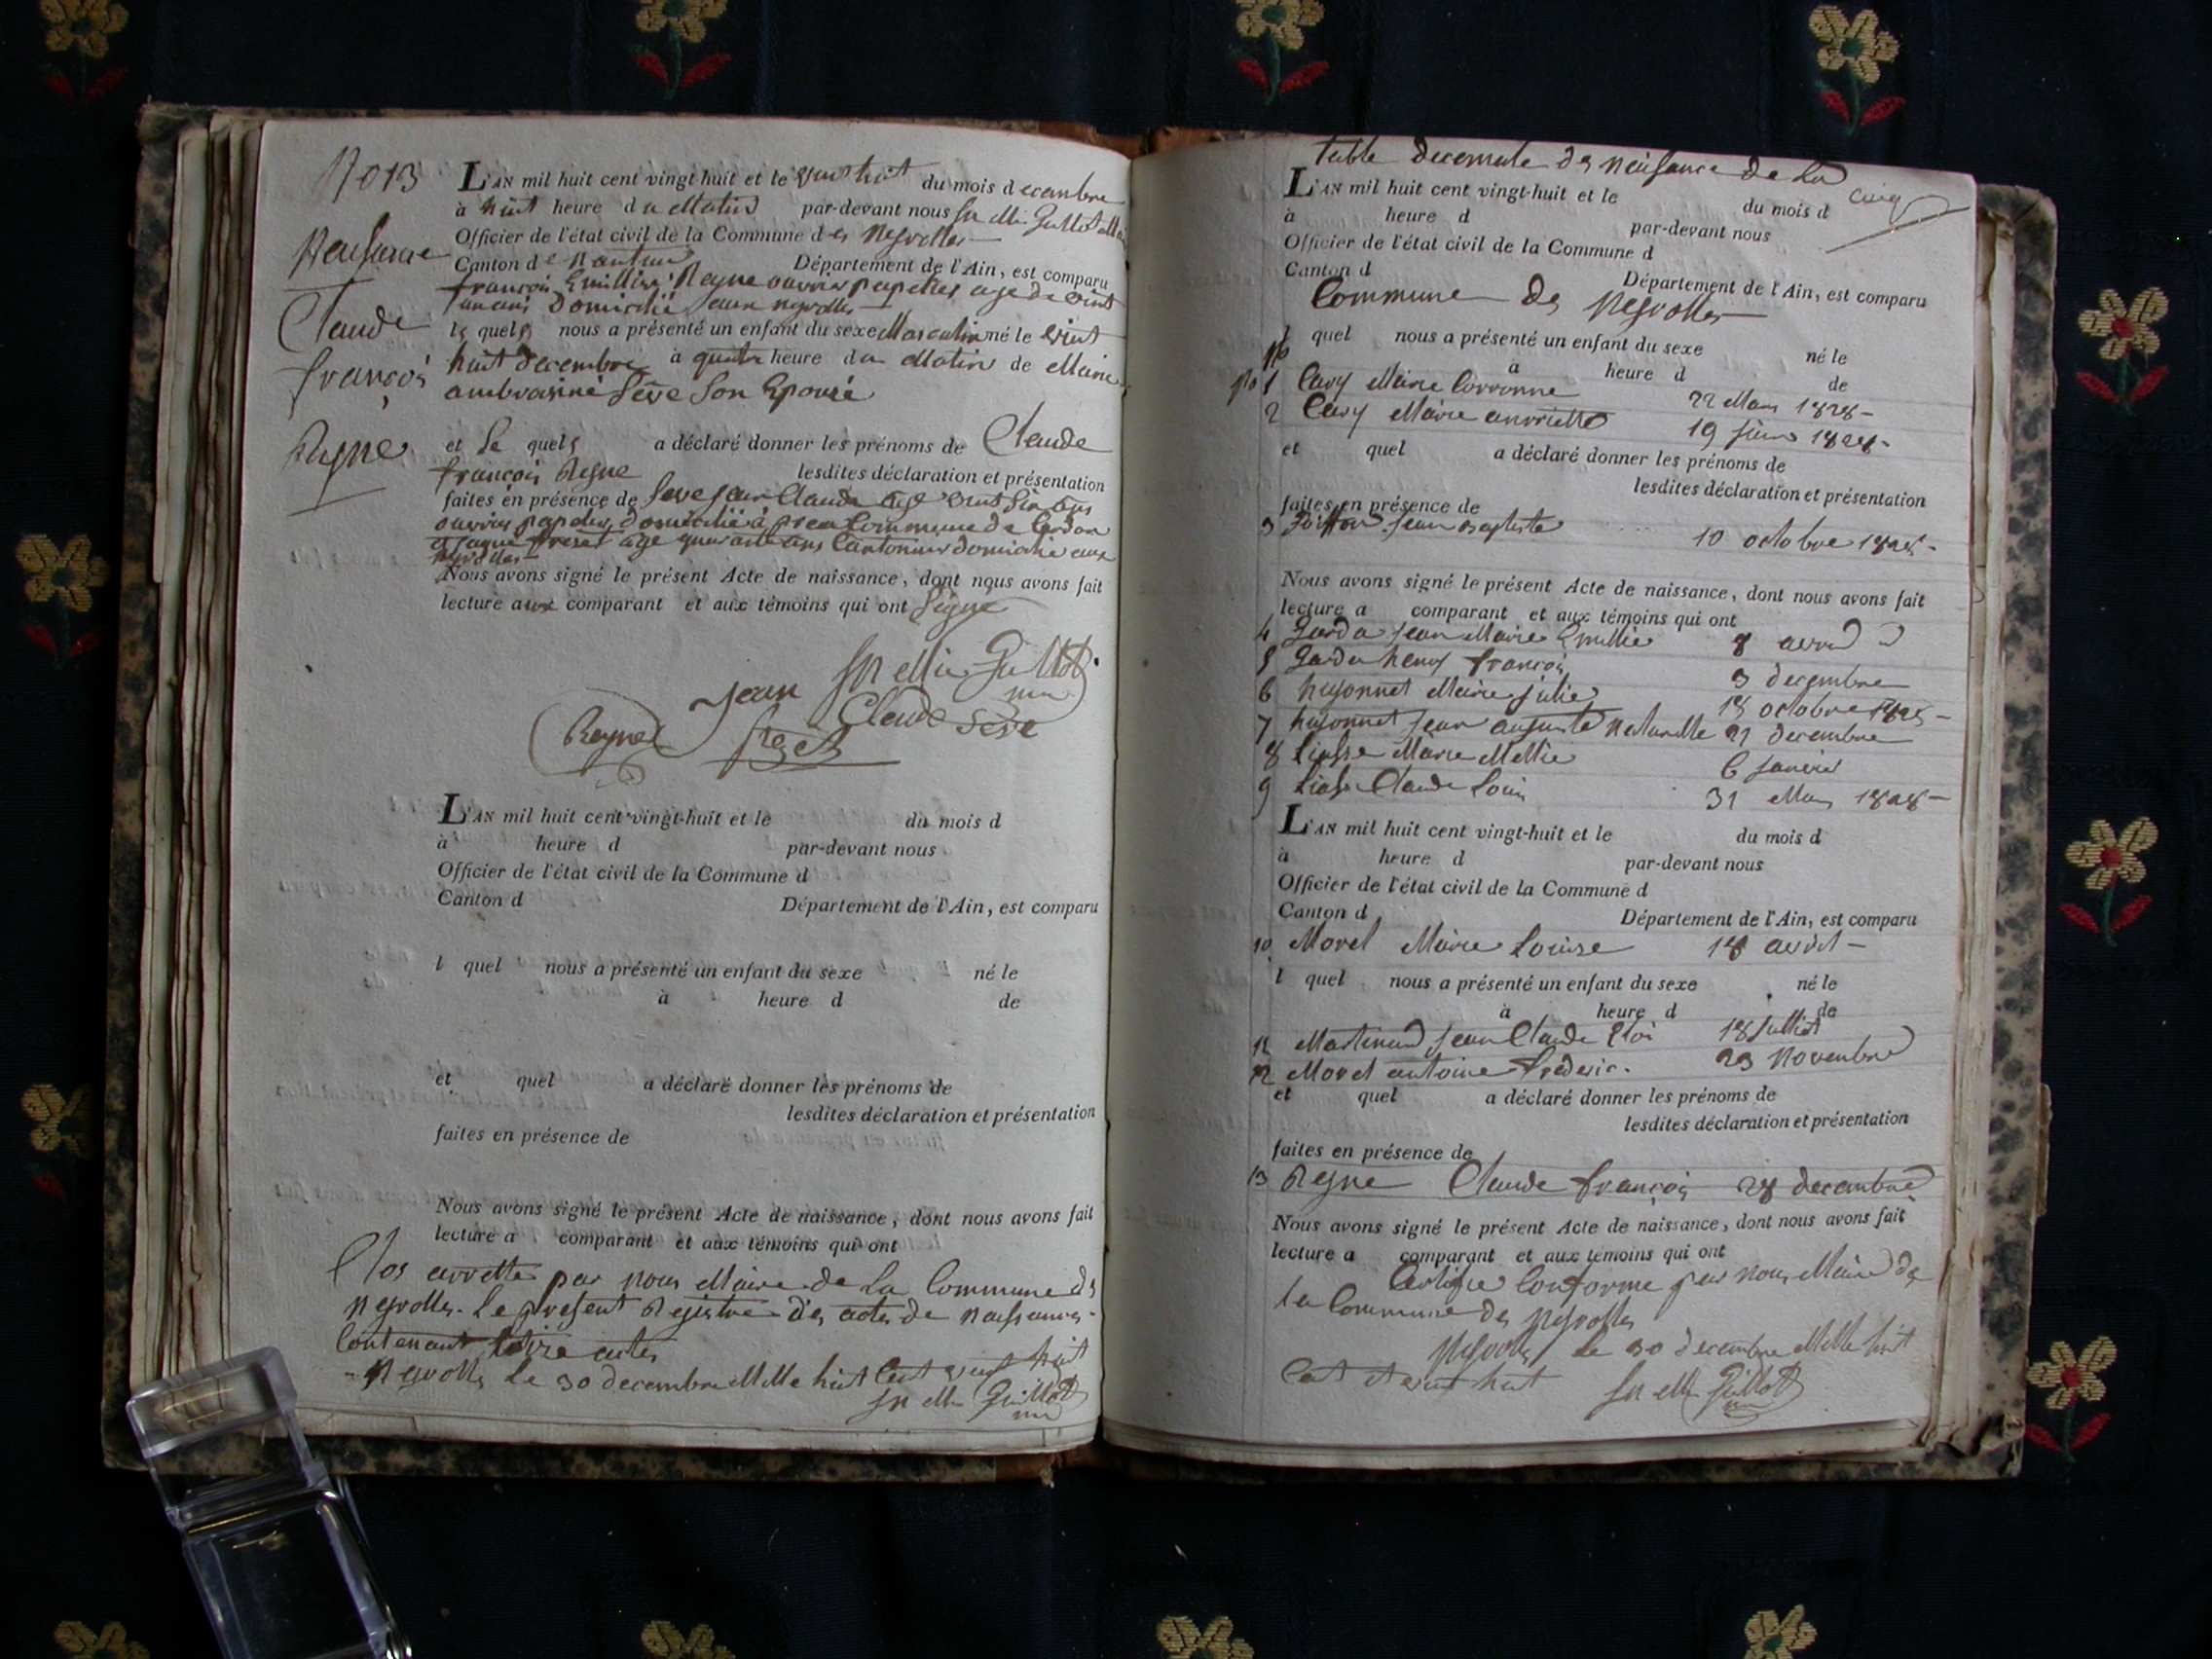 No 13
Naissance
Claude
françois
Reyne
L'AN mil huit cent vingt-huit et le vint huit du mois d ecembre
à huit heure du Matin par-devant nous Jn Mie Guillot Maire
Officier de l'état civil de la Commune des Neyrolles
Canton de Nantua Département de l'Ain, est comparu
françois Reyne ouvrier papetier age de vint
ans Domicilié aux neyrolles
le quel nous a présenté un enfant du sexe Masculin né le vint
huit decembre à quatre heure du Matin de Marie
ambroisine Seve Son Epouse
et Le quel a déclaré donner les prénoms de Claude
françois Reyne lesdites déclaration et présentation
faites en présence de Seve jean Claude age vint Six ans
ouvrier papetier domicilié à commune de Cerdon
age quarante ans Cantonier domicilie aux
neyrolles
Nous avons signé le présent Acte de naissance, dont nous avons fait
lecture aux comparant et aux témoins qui ont Signé
Jn Mie Guillot
jean Claude Seve
Reyne
L'AN mil huit cent vingt-huit et le du mois d
à heure d par-devant nous
Officier de l'état civil de la Commune d
Canton d Département de l'Ain, est comparu
l quel nous a présenté un enfant du sexe né le
à heure d de
et quel a déclaré donner les prénoms de
lesdites déclaration et présentation
faites en présence de
Nous avons signé le présent Acte de naissance, dont nous avons fait
lecture a comparant et aux témoins qui ont
Clos arretté par nous Maire de La Commune des
neyrolles. Le present Registre des actes de naissances
Contenant actes
Neyrolles Le 30 decembre Mille huit Cent vint huit
Jn Mie Guillot
table decennale des naissance de La
L'AN mil huit cent vingt-huit et le du mois d
à heure d par-devant nous
Officier de l'état civil de la Commune d
Canton d Département de l'Ain, est comparu
Commune des Neyrolles
l quel nous a présenté un enfant du sexe né le
à heure d de
No 1 Cavy Marie 22 Mars 1828
2 Cavy Marie 19 juin 1828
et quel a déclaré donner les prénoms de
lesdites déclaration et présentation
faites en présence de
3 jean Baptiste 10 octobre 1828
Nous avons signé le présent Acte de naissance, dont nous avons fait
lecture a comparant et aux témoins qui ont
4 jean Marie 8 avril
5 henry françois 3 decembre
6 hugonnet Marie julie 18 octobre 1828
7 hugonnet jean auguste Naturelle 21 decembre
8 Marie 6 janvier
9 Claude Louis 31 Mars 1828
L'AN mil huit cent vingt-huit et le du mois d
à heure d par-devant nous
Officier de l'état civil de la Commune d
Canton d Département de l'Ain, est comparu
10 Morel Marie Louise 18 avril
l quel nous a présenté un enfant du sexe né le
à heure d de
11 Martinand jean Claude 18 Julliet
12 Morel antoine frederic 23 Novembre
et quel a déclaré donner les prénoms de
lesdites déclaration et présentation
faites en présence de
13 Reyne Claude françois 28 decembre
Nous avons signé le présent Acte de naissance, dont nous avons fait
lecture a comparant et aux témoins qui ont
Certifie Conforme par nous Maire de
La Commune des Neyrolles
Neyrolles le 30 decembre Mille huit
Cent et vint huit Jn Mie Guillot